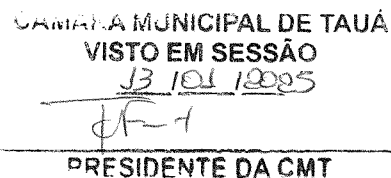 CÂMARA MUNICIPAL DE TAUÁ
VISTO EM SESSÃO
13 / 01 / 2025
PRESIDENTE DA CMT